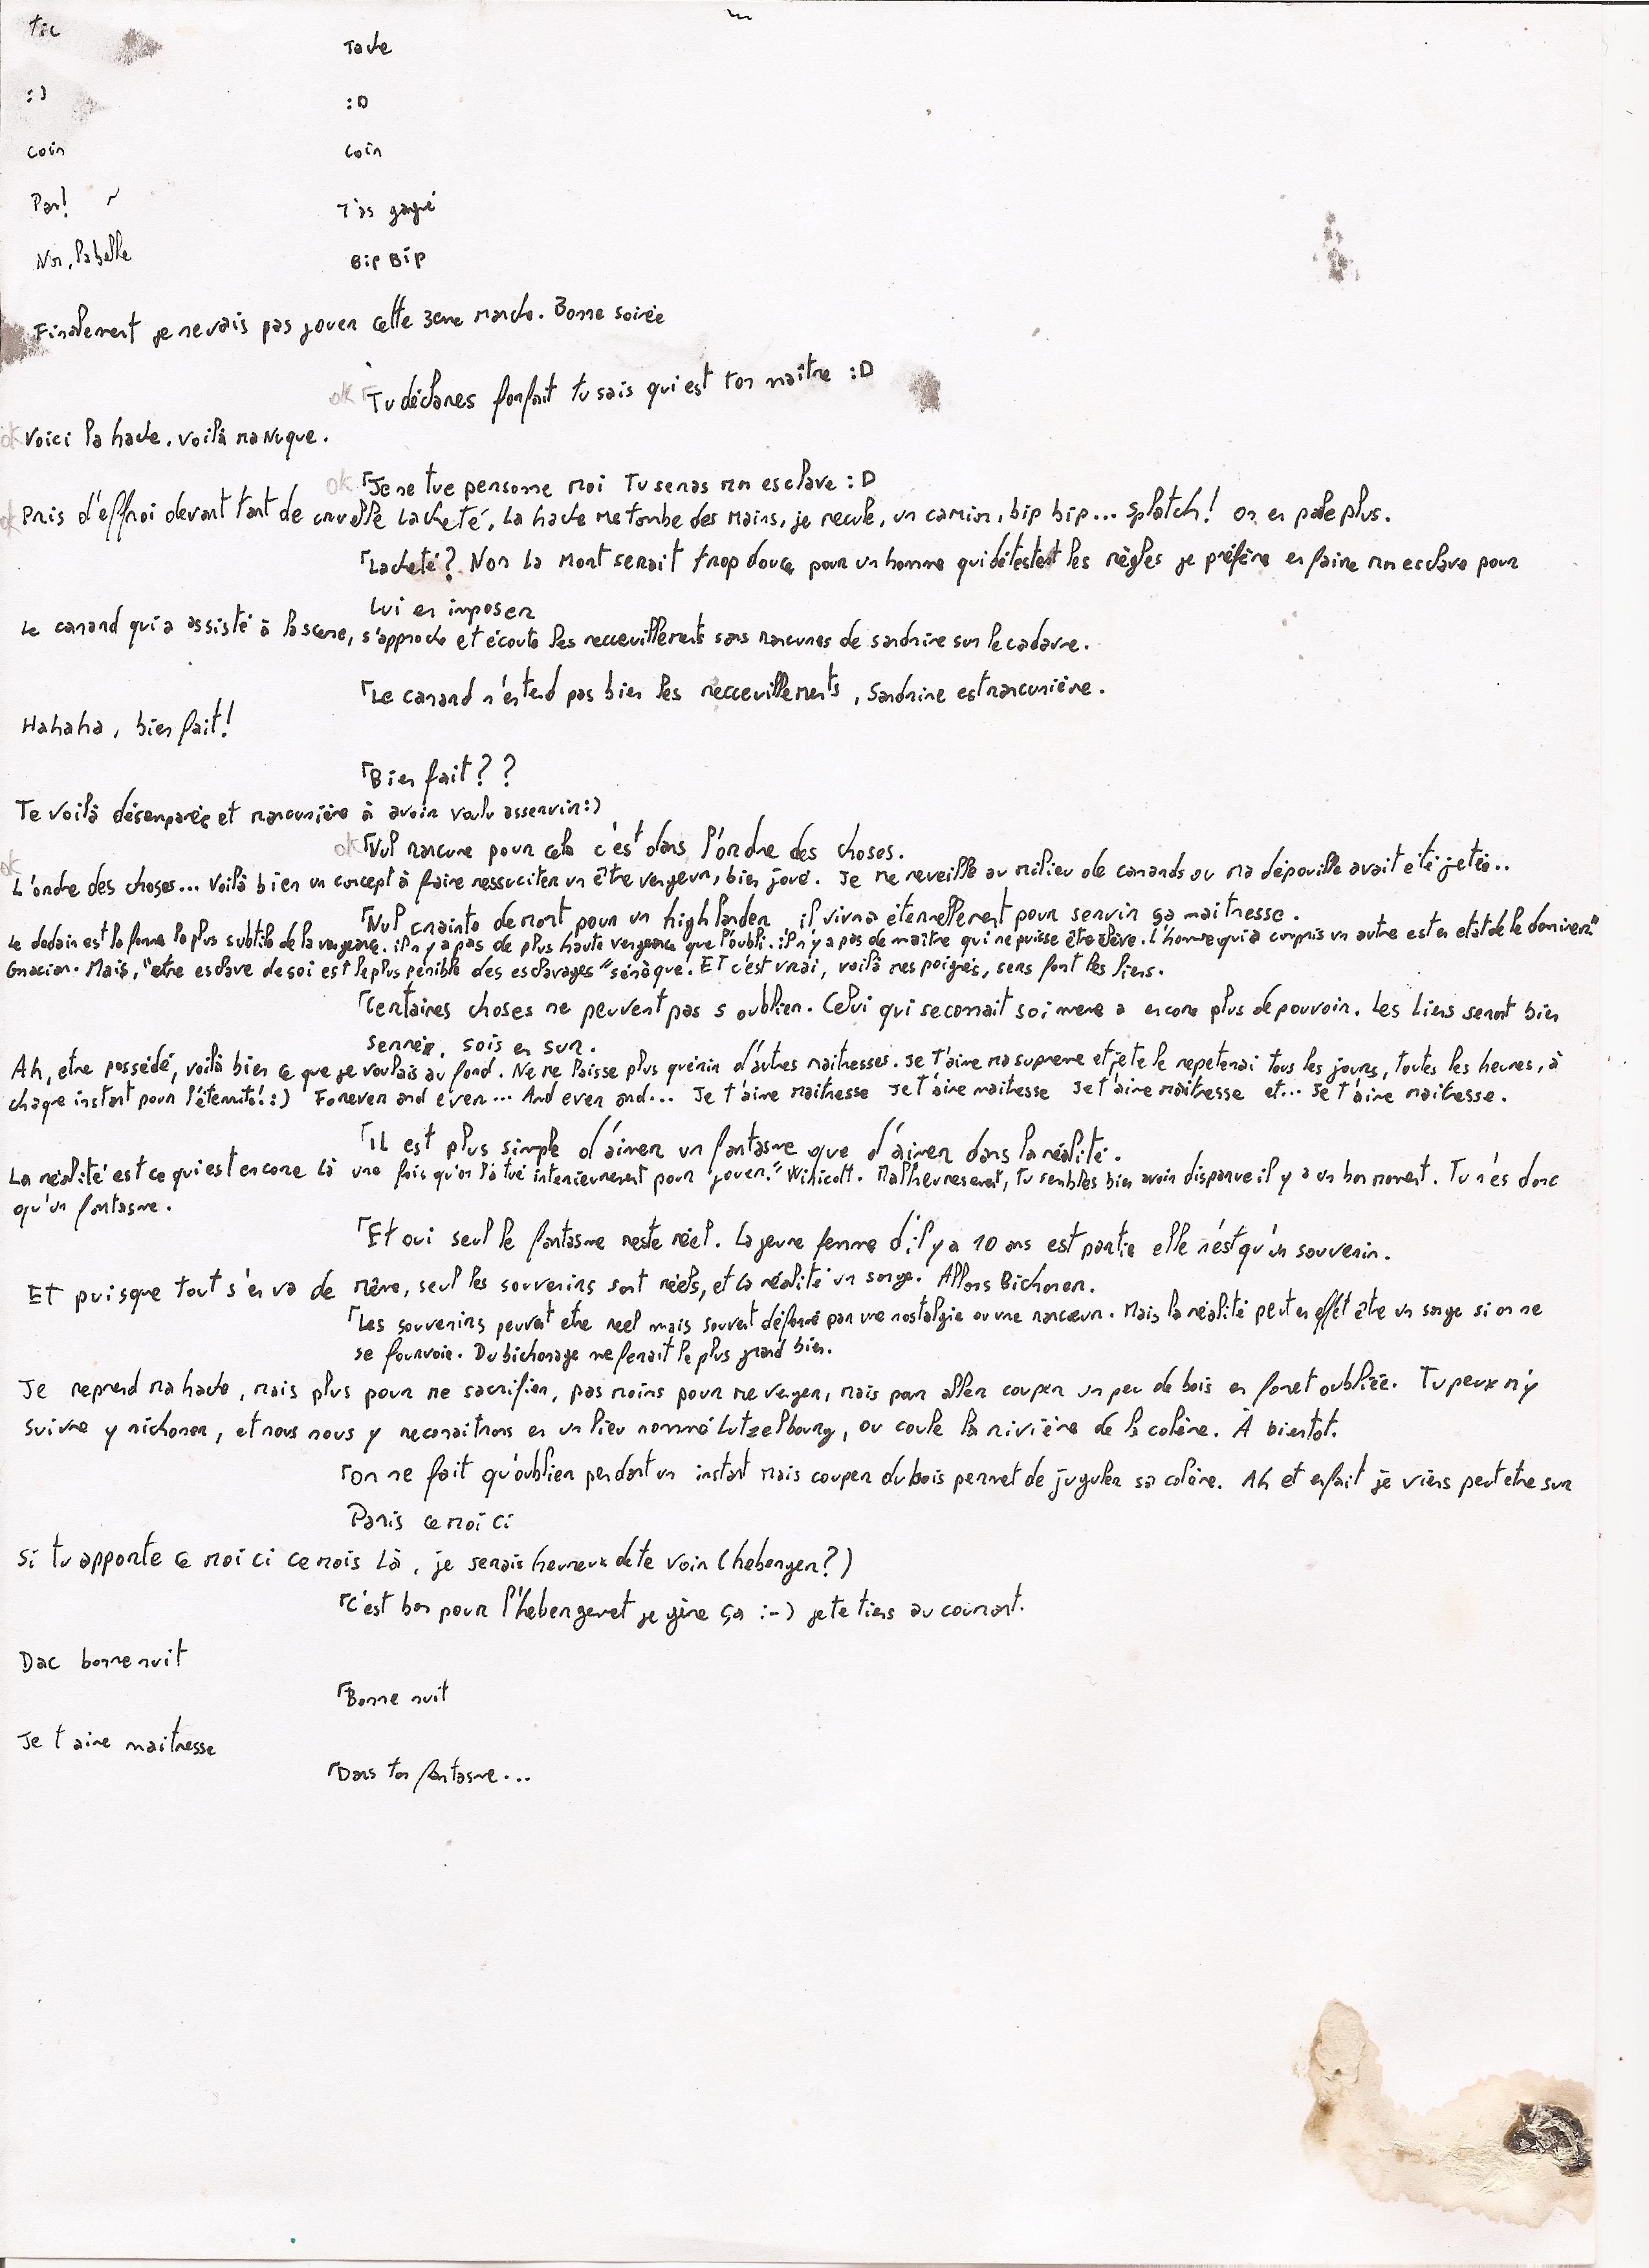 tic
Tache
:)
:D
coin
coin
Pan!
T'as gagné
Non, la belle
Bip Bip
Finalement je ne vais pas jouer cette 3eme manche. Bonne soirée
ok Tu déclares forfait tu sais qui est ton maître :D
ok Voici la hache. voilà ma Nuque.
ok Je ne tue personne moi Tu seras mon esclave :D
ok Pris d'éffroi devant tant de cruelle Lacheté, La hache me tombe des mains, je recule, un camion, bip bip... splatch! on en parle plus.
Lacheté? Non La Mort serait trop douce pour un homme qui détestent les règles je préfère en faire mon esclave pour
Lui en imposer
Le canard qui a assisté à la scene, s'approche et écoute les reccueillements sans rancunes de sandrine sur le cadavre.
Le canard n'entend pas bien les reccueillements, Sandrine est rancunière.
Hahaha, bien fait!
Bien fait??
Te voilà désemparée et rancunière à avoir voulu asservir:)
ok Nul rancune pour cela c'est dans l'ordre des choses.
ok L'ordre des choses... Voilà bien un concept à faire ressuciter un être vengeur, bien joué. Je me reveille au milieu de canards ou ma dépouille avait été jetée..
Nul crainte de mort pour un highlander il vivra éternellement pour servir sa maitresse.
Le dedain est la forme la plus subtile de la vengeance. il n'y a pas de plus haute vengeance que l'oubli. il n'y a pas de maître qui ne puisse être élève. L'homme qui a compris un autre est en etat de le dominer"
Gracian. Mais, "etre esclave de soi est le plus pénible des esclavages" sénèque. Et c'est vrai, voilà mes poignés, sers fort les liens.
Certaines choses ne peuvent pas s oublier. Celui qui se connait soi meme a encore plus de pouvoir. Les Liens seront bien
serrér, sois en sur.
Ah, etre possédé, voilà bien ce que je voulais au fond. Ne me laisse plus quérir d'autres maitresses. Je t'aime ma supreme et je te le repeterai tous les jours, toutes les heures, à
chaque instant pour l'éternité!:) Forever and ever... And ever and... Je t'aime maitresse Je t'aime maitresse Je t'aime maitresse et... Je t'aime maitresse.
Il est plus simple d'aimer un fantasme que d'aimer dans la réalité.
La réalité est ce qui est encore là une fois qu'on l'a tué interieurement pour jouer." Winicott. Malheureusement, tu sembles bien avoir disparue il y a un bon moment. Tu n'es donc
qu'un fantasme.
Et oui seul le fantasme reste réel. La jeune femme d'il y a 10 ans est partie elle n'est qu'un souvenir.
Et puisque tout s'en va de même, seul les souvenirs sont réels, et la réalité un songe. Allons Bichoner.
Les souvenirs peuvent etre reel mais souvent déformé par une nostalgie ou une rancœur. Mais la réalité peut en effet être un songe si on ne
se fourvoie. Du bichonage me ferait le plus grand bien.
Je reprend ma hache, mais plus pour me sacrifier, pas moins pour me venger, mais pour aller couper un peu de bois en foret oubliée. Tu peux m'y
suivre y nichoner, et nous nous y reconaitrons en un lieu nommé Lutzelbourg, ou coule la rivière de la colère. À bientôt.
on ne fait qu'oublier pendant un instant mais couper du bois permet de juguler sa colère. Ah et enfait je viens peut etre sur
Paris ce moi ci
Si tu apporte ce moi ci ce mois Là, je serais heureux de te voir (heberger?)
C'est bon pour l'hebergement je gère ça :-) je te tiens au courant.
Dac bonne nuit
Bonne nuit
Je t aime maitresse
Dans ton fantasme...